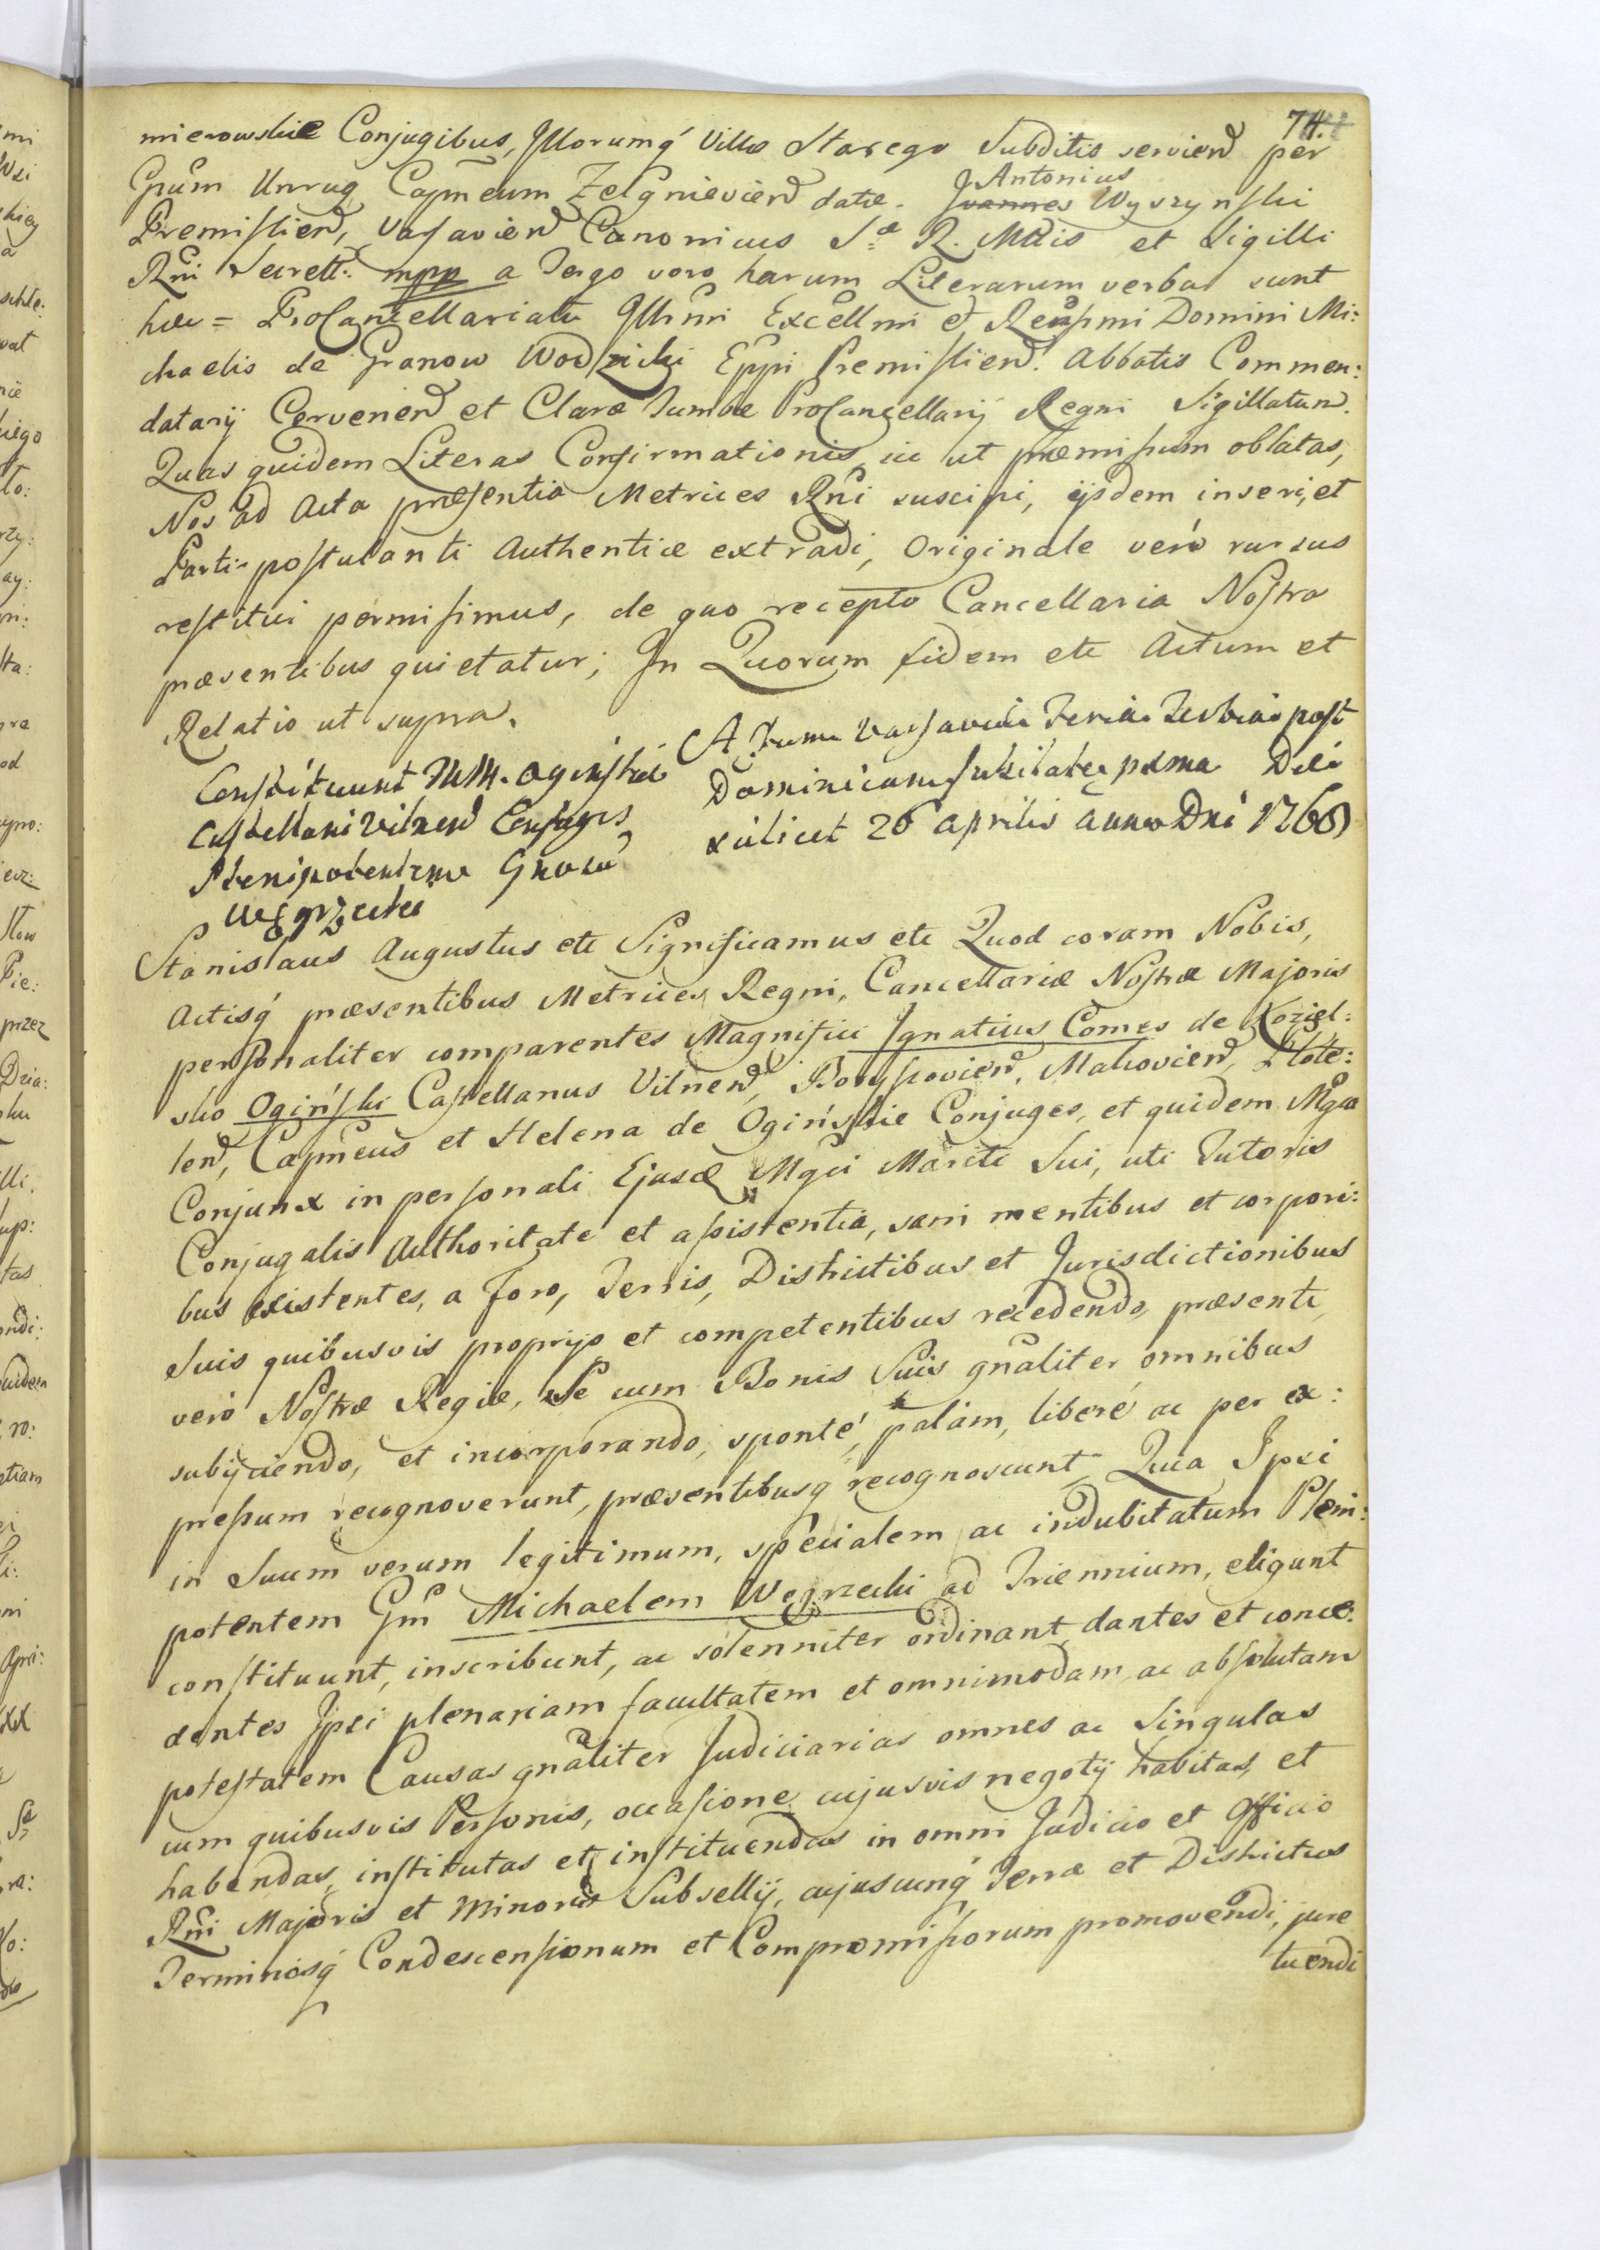 74.
mierowskie Conjugibus, Illorumq́ Villæ Starego Subditis servien̄ per
Gn̄um Unrug Capn̄eum Zelgnievien̄ datæ. Antonius Wyszynski
Premislien̄, Varsavien̄ Canonicus S.æ R. Mttis et Sigilli
Rn̄i Secrett: mpp a Tergo vero harum Literarum verba sunt
hæc = ProCancellariatu Illm̄i Excellm̄i et Reu̅ss̅mi Domini Mi:
chaelis de Granow Wodzicki Epp̄i Premislien̄. Abbatis Commen:
datarij Cervenen̄ et Claræ Tumbæ ProCancellarij Regni Sigillatum.
Quas quidem Literas Confirmationis, uti ut præmissum oblatas,
Nos ad Acta præsentia Metrices Rn̄i suscipi, ijsdem inseri, et
Parti postulanti Authenticè extradi, Originale verò rursus
restitui permisimus, de quo recepto Cancellaria Nostra
præsentibus quietatur; In Quorum fidem etc Actum et
Relatio ut supra.
Constituunt MM. Ogińskie
Castellani Vilnen̄ Conjuges
Plenipotentem Gn̄osum
Węgrzecki
Actum Varsaviæ Feria Tertia post
Dominicam Jubilate proxima Die
scilicet 26 Aprilis Anno Dn̄i 1768
Stanislaus Augustus etc Significamus etc Quod coram Nobis,
Actisq́ præsentibus Metrices Regni, Cancellariæ Nostræ Majoris
personaliter comparentes Magnifici Ignatius Comes de Koziel:
sko Ogiński Castellanus Vilnen̄, Borysovien̄, Makovien̄, Plote:
len̄, Capn̄eus et Helena de Ogińskie Conjuges, et quidem Mgca
Conjunx in personali Ejusd̄ Mgci Mariti Sui, uti Tutoris
Conjugalis Authoritate et assistentia, sani mentibus et corpori:
bus existentes, a Foro, Terris, Districtibus et Jurisdictionibus
Suis quibusvis proprijs et competentibus recedendo, præsenti,
verò Nostræ Regiæ, Se cum Bonis Suis gn̄aliter omnibus
subijciendo, et incorporando, spontè, palàm, liberè ac per ex:
pressum recognoverunt, præsentibusq́ recognoscunt, Quia Ipsi
in Suum verum legitimum, specialem ac indubitatum Pleni:
potentem Gn̄m Michaelem Węgrzecki ad Triennium, eligunt
constituunt, inscribunt, ac solenniter ordinant, dantes et conce:
dentes Ipsi plenariam facultatem et omnimodam, ac absolutam
potestatem Causas gn̄aliter Judiciarias omnes ac Singulas
cum quibusvis Personis, occasione cujusvis negotij habitas, et
habendas, institutas et instituendas in omni Judicio et Officio
Rn̄i Majoris et Minoris Subsellij, cujuscunq́ Terræ et Districtus
Terminosq́ Condescensionum et Compromissorum promovendi, jure
tuendi